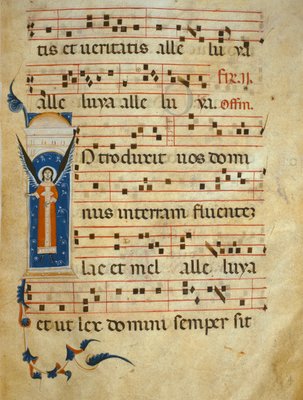 tis et ueritatis alle lu ya
alle luya alle lu ya. Offm.
I Ntroduxit uos domi
nus interram fluentez
lac et mel alle luya
et ut lex domini semper sit